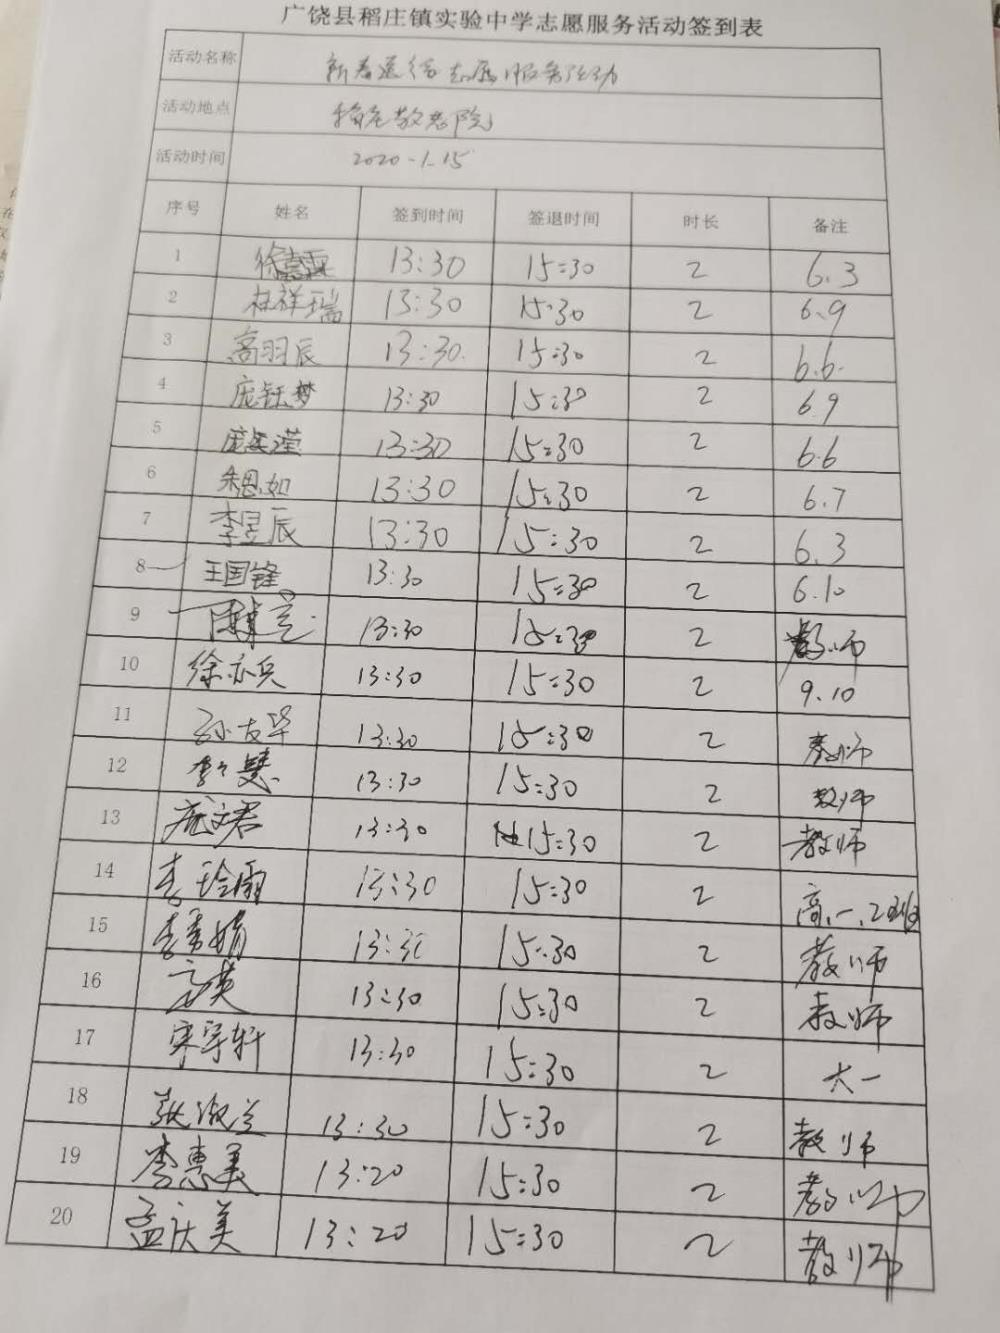 广饶县稻庄镇实验中学志愿服务活动签到表
活动名称 新春送福志愿服务活动
活动地点 稻庄敬老院
活动时间 2020-1.15
序号 姓名 签到时间 签退时间 时长 备注
1 徐嘉霖 13:30 15:30 2 6.3
2 林祥瑞 13:30 15:30 2 6.9
3 高羽辰 13:30. 15:30 2 6.6.
4 庞钰梦 13:30 15:30 2 6.9
5 庞 滢 13:30 15:30 2 6.6
6 朱思如 13:30 15:30 2 6.7
7 李昱辰 13:30 15:30 2 6.3
8 王国锋 13:30 15:30 2 6.10
9 13:30 15:30 2 教师
10 徐亦兵 13:30 15:30 2 9.10
11 孙友华 13:30 15:30 2 教师
12 李 慧 13:30 15:30 2 教师
13 庞文君 13:30 15:30 2 教师
14 李玲雨 13:30 15:30 2 高一.2班
15 李秀娟 13:30 15:30 2 教师
16 英 13:30 15:30 2 教师
17 宋宇轩 13:30 15:30 2 大一
18 张淑兰 13:30 15:30 2 教师
19 李惠美 13:20 15:30 2 教师
20 孟庆美 13:20 15:30 2 教师